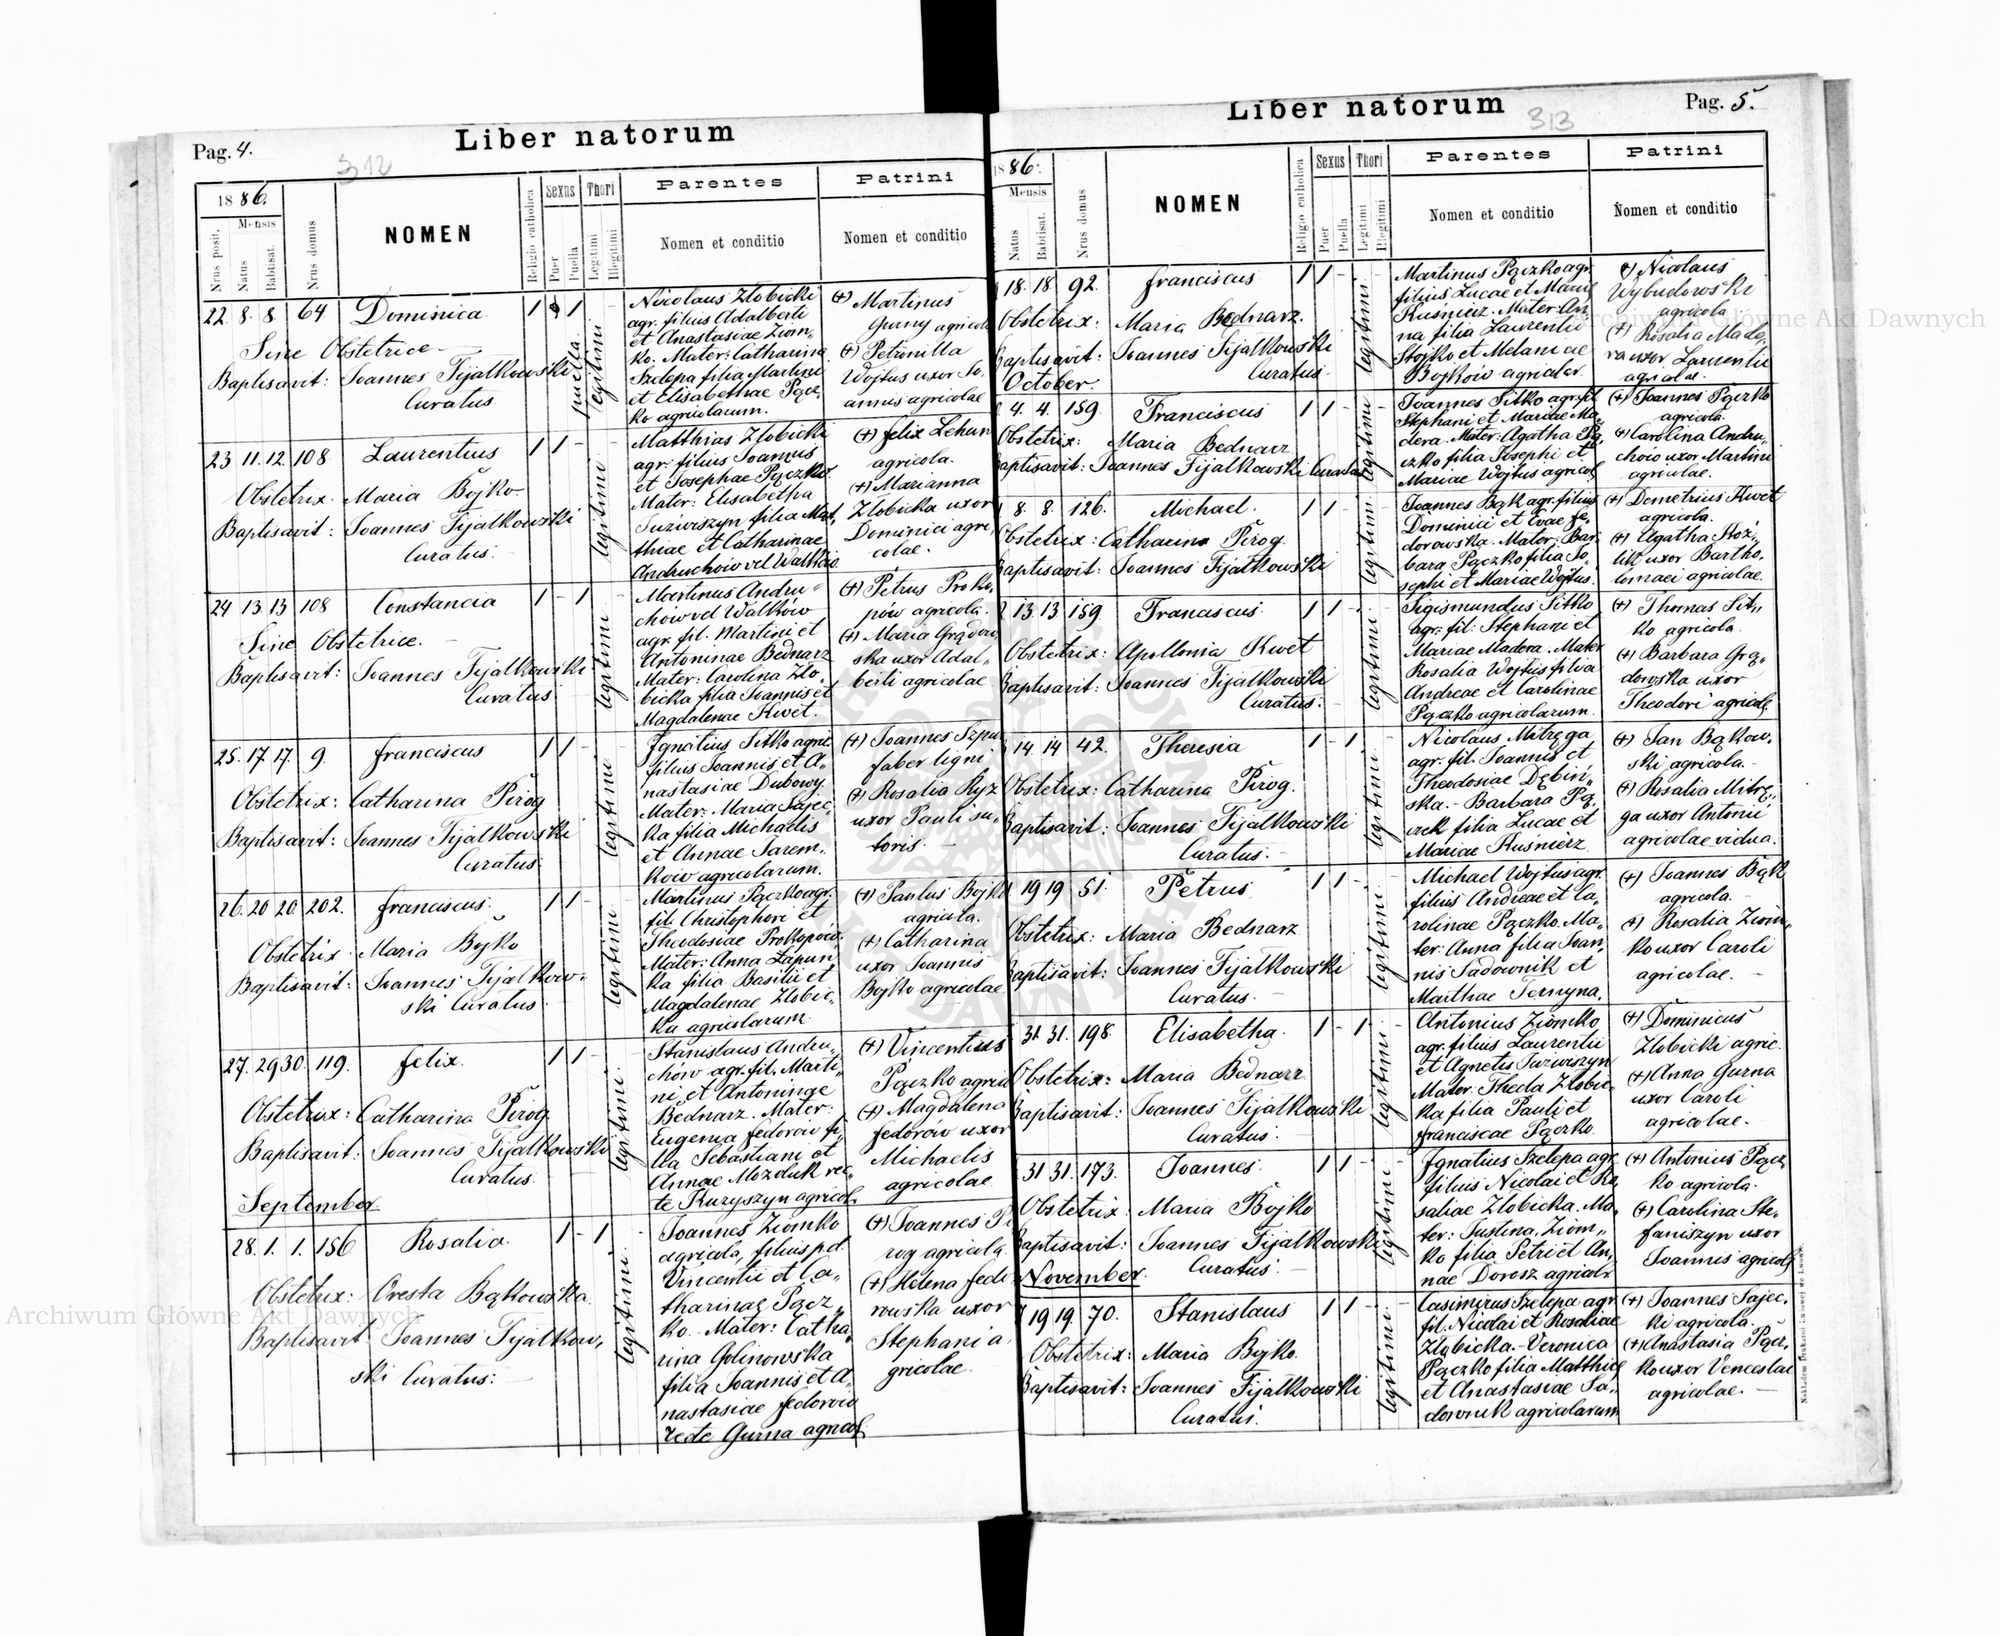 Pag. 4.
Liber natorum
312
1886.
Mensis
Nrus posit.
Natus
Babtisat.
Nrus domus
NOMEN
Religio catholica
Sexus
Puer
Puella
Thori
Legitimi
Illegitimi
Parentes
Nomen et conditio
Patrini
Nomen et conditio
22. 8. 8. 64 Dominica 1 - 1
Sine Obstetrice
Baptisavit: Joannes Fijałkowski
Curatus
puella
legitimi
Nicolaus Złobicki
agr. filius Adalberti
et Anastasiae Ziom„
ko. Mater: Catharina
Szelepa filia Martini
et Elisabethae Pącz„
ko agricolarum.
(+) Martinus
Gurny agricola
(+) Petronilla
Wojtus uxor Jo„
annis agricolae
23 11. 12. 108 Laurentius 1 1 -
Obstetrix Maria Bojko
Baptisavit: Joannes Fijałkowski
Curatus:
legitimi
Matthias Złobicki
agr. filius Joannis
et Josephae Pączko
Mater: Elisabetha
Juziwiszyn filia Mat„
thiae et Catharinae
Andruchow vel Walków
(+) Felix Lehun
agricola.
(+) Marianna
Złobicka uxor
Dominici agri„
colae.
24 13. 13 108 Constancia 1 - 1
Sine Obstetrice.
Baptisavit: Joannes Fijałkowski
Curatus
legitimi
Martinus Andru„
chow vel Walków
agr. fil. Martini et
Antoninae Bednarz
Mater: Carolina Zło„
bicka filia Joannis et
Magdalenae Kwet.
(+) Petrus Proko„
pów agricola.
(+) Maria Grądow„
ska uxor Adal„
berti agricolae
25. 17. 17. 9. Franciscus 1 1 -
Obstetrix: Catharina Pirog
Baptisavit: Joannes Fijałkowski
Curatus:
legitimi
Ignatius Sitko agric.
filius Joannis et A„
nastasiae Dubowy.
Mater: Maria Sajec„
ka filia Michaelis
et Annae Jarem„
kow agricolarum.
(+) Joannes Szpu
faber ligni
(+) Rosalia Ryz
uxor Pauli su„
toris.
26. 20 20. 202. Franciscus. 1 1 -
Obstetrix Maria Bojko
Baptisavit: Joannes Fijałkow„
ski Curatus
legitimi
Martinus Pączko agr.
fil. Christophori et
Theodosiae Prokopów.
Mater: Anna Łapun„
ka filia Basilii et
Magdalenae Złobic„
ka agricolarum
(+) Paulus Bojko
agricola.
(+) Catharina
uxor Joannis
Bojko agricolae
27. 29 30. 119. Felix. 1 1 -
Obstetrix: Catharina Pirog
Baptisavit: Joannes Fijałkowski
Curatus.
legitimi
Stanislaus Andru„
chów agr. fil. Marti„
ni et Antoninae
Bednarz. Mater:
Eugenia Fedorów fi„
lia Sebastiani et
Annae Mozoluk rec„
te Kuzyszyn agricol.
(+) Vincentius
Pączko agric
(+) Magdalena
Fedorów uxor
Michaelis
agricolae
September
28. 1. 1. 156 Rosalia. 1 - 1
Obstetrix: Oresta Bąkowska.
Baptisavit: Joannes Fijałkow„
ski Curatus:
legitimi
Joannes Ziomko
agricola, filius p.d.
Vincentii et Ca„
tharinae Pącz„
ko. Mater: Catha„
rina Golinowska
filia Joannis et A„
nastasiae Fedorow
recte Gurna agricol.
(+) Joannes Pi
rog agricola
(+) Helena Fedo
rowska uxor
Stephani a
gricolae.
Liber natorum
313
Pag. 5.
1886.
Mensis
Natus
Babtisat.
Nrus domus
NOMEN
Religio catholica
Sexus
Puer
Puella
Thori
Legitimi
Illegitimi
Parentes
Nomen et conditio
Patrini
Nomen et conditio
18. 18 92. Franciscus 1 1 -
Obstetrix: Maria Bednarz.
Baptisavit: Joannes Fijałkowski
Curatus
legitimi
Martinus Pączko agr.
filius Lucae et Mariae
Kuśnierz. Mater: An„
na filia Laurentii
Stojko et Melaniae
Bojkow agricolar.
(+) Nicolaus
Wybudowski
agricola
(+) Rosalia Mado„
ra uxor Laurentii
agricolae.
October.
4. 4. 159. Franciscus 1 1 -
Obstetrix: Maria Bednarz
Baptisavit: Joannes Fijałkowski Curatus
legitimi
Joannes Sitko agr. fil.
Stephani et Mariae Ma„
dera. Mater: Agatha Pą„
czko filia Josephi et
Mariae Wojtus agricol.
(+) Joannes Pączko
agricola.
(+) Carolina Andru„
chow uxor Martini
agricolae.
8. 8. 126. Michael. 1 1 -
Obstetrix: Catharina Pirog.
Baptisavit: Joannes Fijałkowski
legitimi
Joannes Bąk agr. filius
Dominici et Evae Fe„
dorowska. Mater: Bar„
bara Pączko filia Jo„
sephi et Mariae Wojtus.
(+) Demetrius Kwet
agricola.
(+) Agatha
uxor Bartho„
lomaei agricolae.
13. 13 159. Franciscus. 1 1 -
Obstetrix: Apollonia Kwet
Baptisavit: Joannes Fijałkowski
Curatus:
legitimi
Sigismundus Sitko
agr. fil: Stephani et
Mariae Madera. Mater
Rosalia Wojtus filia
Andreae et Carolinae
Pączko agricolarum
(+) Thomas Sit„
ko agricola.
(+) Barbara Grą„
dowska uxor
Theodori agricol.
14. 14 42. Theresia 1 - 1
Obstetrix: Catharina Pirog.
Baptisavit: Joannes Fijałkowski
Curatus:
legitimi
Nicolaus Mitręga
agr. fil. Joannis et
Theodosiae Dębiń„
ska. - Barbara Pą„
czek filia Lucae et
Mariae Kuśnierz.
(+) Jan Bąkow„
ski agricola.
(+) Rosalia Mitrę„
ga uxor Antonii
agricolae vidua.
19 19 51. Petrus 1 1 -
Obstetrix: Maria Bednarz
Baptisavit: Joannes Fijałkowski
Curatus.
legitimi
Michael Wojtus agr.
filius Andreae et Ca„
rolinae Pączko. Ma„
ter: Anna filia Joan„
nis Sadownik et
Marthae Ternyna.
(+) Joannes Bąk
agricola.
(+) Rosalia Ziom„
ko uxor Caroli
agricolae.
31. 31. 198. Elisabetha. 1 - 1
Obstetrix: Maria Bednarz
Baptisavit: Joannes Fijałkowski
Curatus:
legitimi
Antonius Ziomko
agr. filius Laurentii
et Agnetis Juziwiszyn
Mater: Thecla Złobic„
ka filia Pauli et
Franciscae Pączko.
(+) Dominicus
Złobicki agric.
(+) Anna Gurna
uxor Caroli
agricolae.
31. 31. 173. Joannes. 1 1 -
Obstetrix: Maria Bojko
Baptisavit: Joannes Fijałkowski
Curatus:
legitimi
Ignatius Szelepa agr.
filius Nicolai et Ro„
saliae Złobicka. Ma„
ter: Justina Ziom„
ko filia Petri et An„
nae Dorosz agricolr.
(+) Antonius Pącz„
ko agricola.
(+) Carolina Ste„
faniszyn uxor
Joannis agricol.
November.
19 19. 70. Stanislaus 1 1 -
Obstetrix: Maria Bojko.
Baptisavit: Joannes Fijałkowski
Curatus.
legitimi
Casimirus Szelepa agr.
fil. Nicolai et Rosaliae
Złobicka. - Veronica
Pączko filia Matthiae
et Anastasiae Sa„
downik agricolarum
(+) Joannes Sajec„
ki agricola.
(+) Anastasia Pącz„
ko uxor Venceslai
agricolae.
Archiwum Główne Akt Dawnych
Archiwum Główne Akt Dawnych